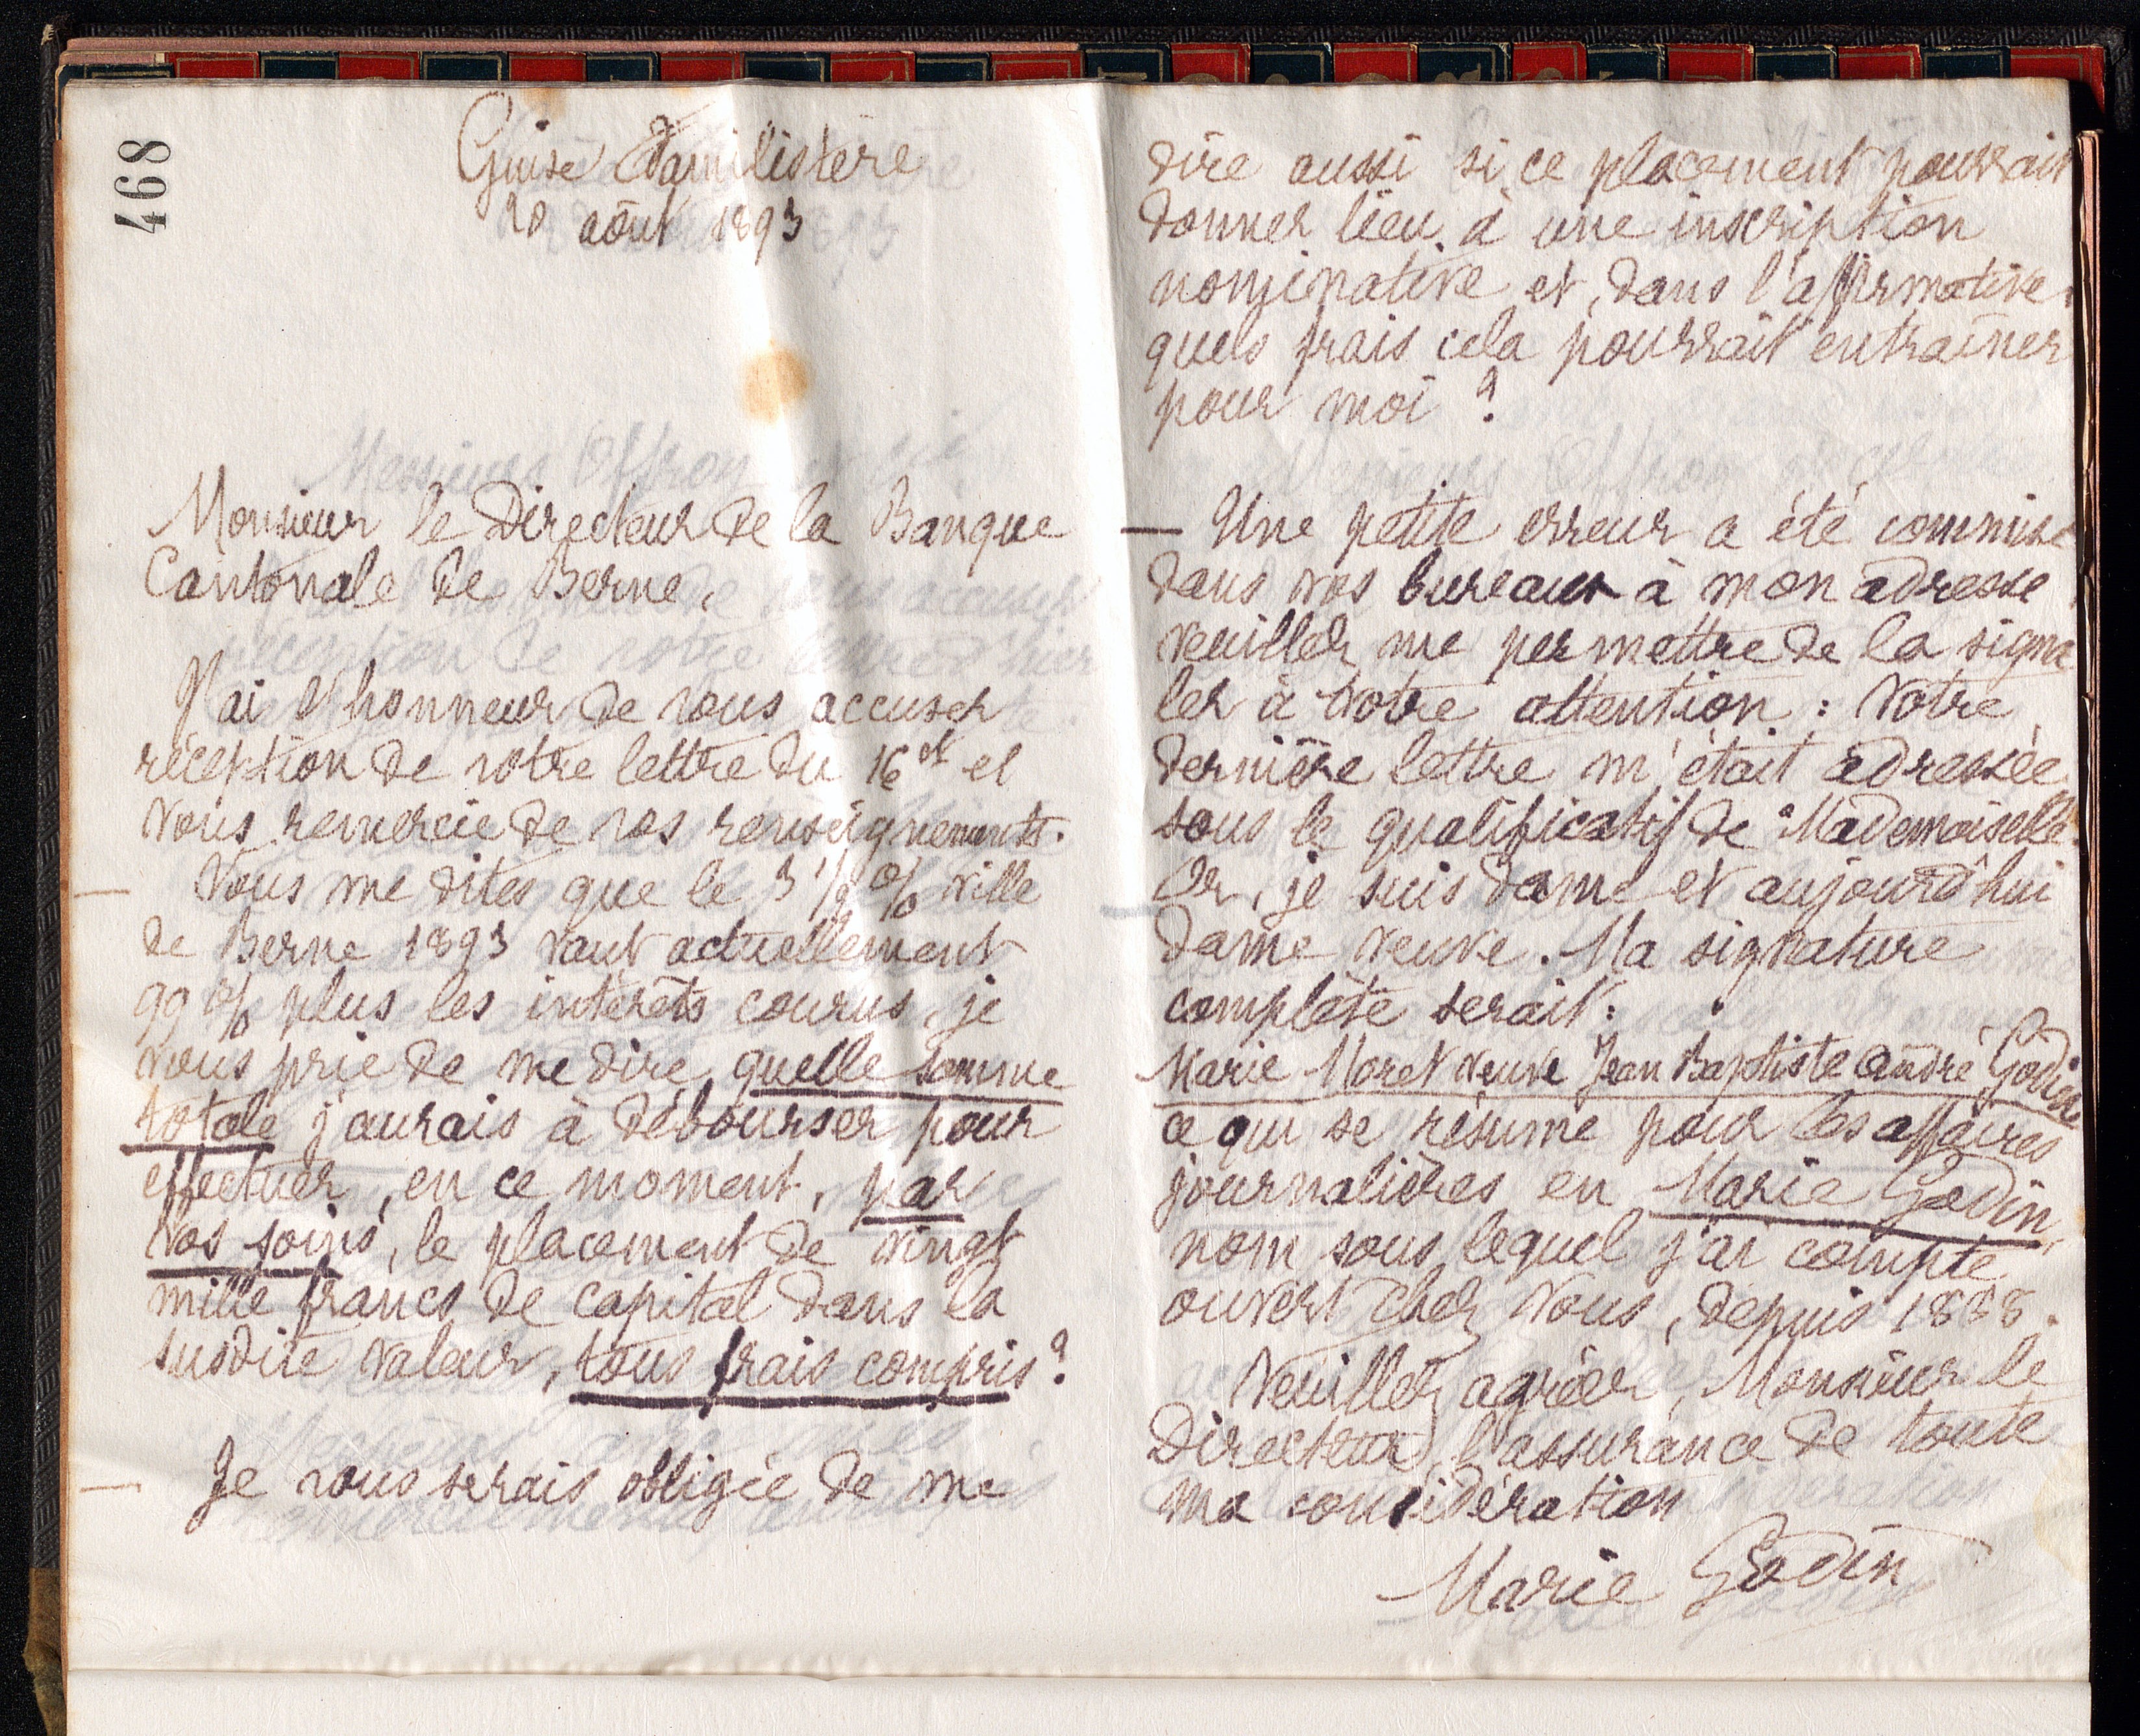 468
Guise Familistère
20 août 1893
Monsieur le Directeur de la Banque
Cantonale de Berne,
J'ai l'honneur de vous accuser
réception de votre lettre du 16 ct et
vous remercie de vos renseignements.
— Vous me dites que le 3 1/2 % ville
de Berne 1893 vaut actuellement
99 % plus les intérêts courus, je
vous prie de me dire quelle somme
totale j'aurais à débourser pour
effectuer, en ce moment, par
vos soins, le placement de vingt
mille francs de capital dans la
susdite valeur, tous frais compris ?
— Je vous serais obligée de me
dire aussi si ce placement pourrait
donner lieu à une inscription
nominative et, dans l'affirmative,
quels frais cela pourrait entraîner
pour moi ?
— Une petite erreur a été commise
dans vos bureaux à mon adresse
veuillez me permettre de la signa
ler à votre attention : Votre
dernière lettre m'était adressée
sous le qualificatif de "Mademoiselle"
Or, je suis dame et aujourd'hui
dame veuve. Ma signature
complète serait :
Marie Moret veuve Jean Baptiste André Godin
ce qui se résume pour les affaires
journalières en Marie Godin,
nom sous lequel j'ai compte
ouvert chez vous, depuis 1888.
Veuillez agréer, Monsieur le
Directeur, l'assurance de toute
ma considération
Marie Godin